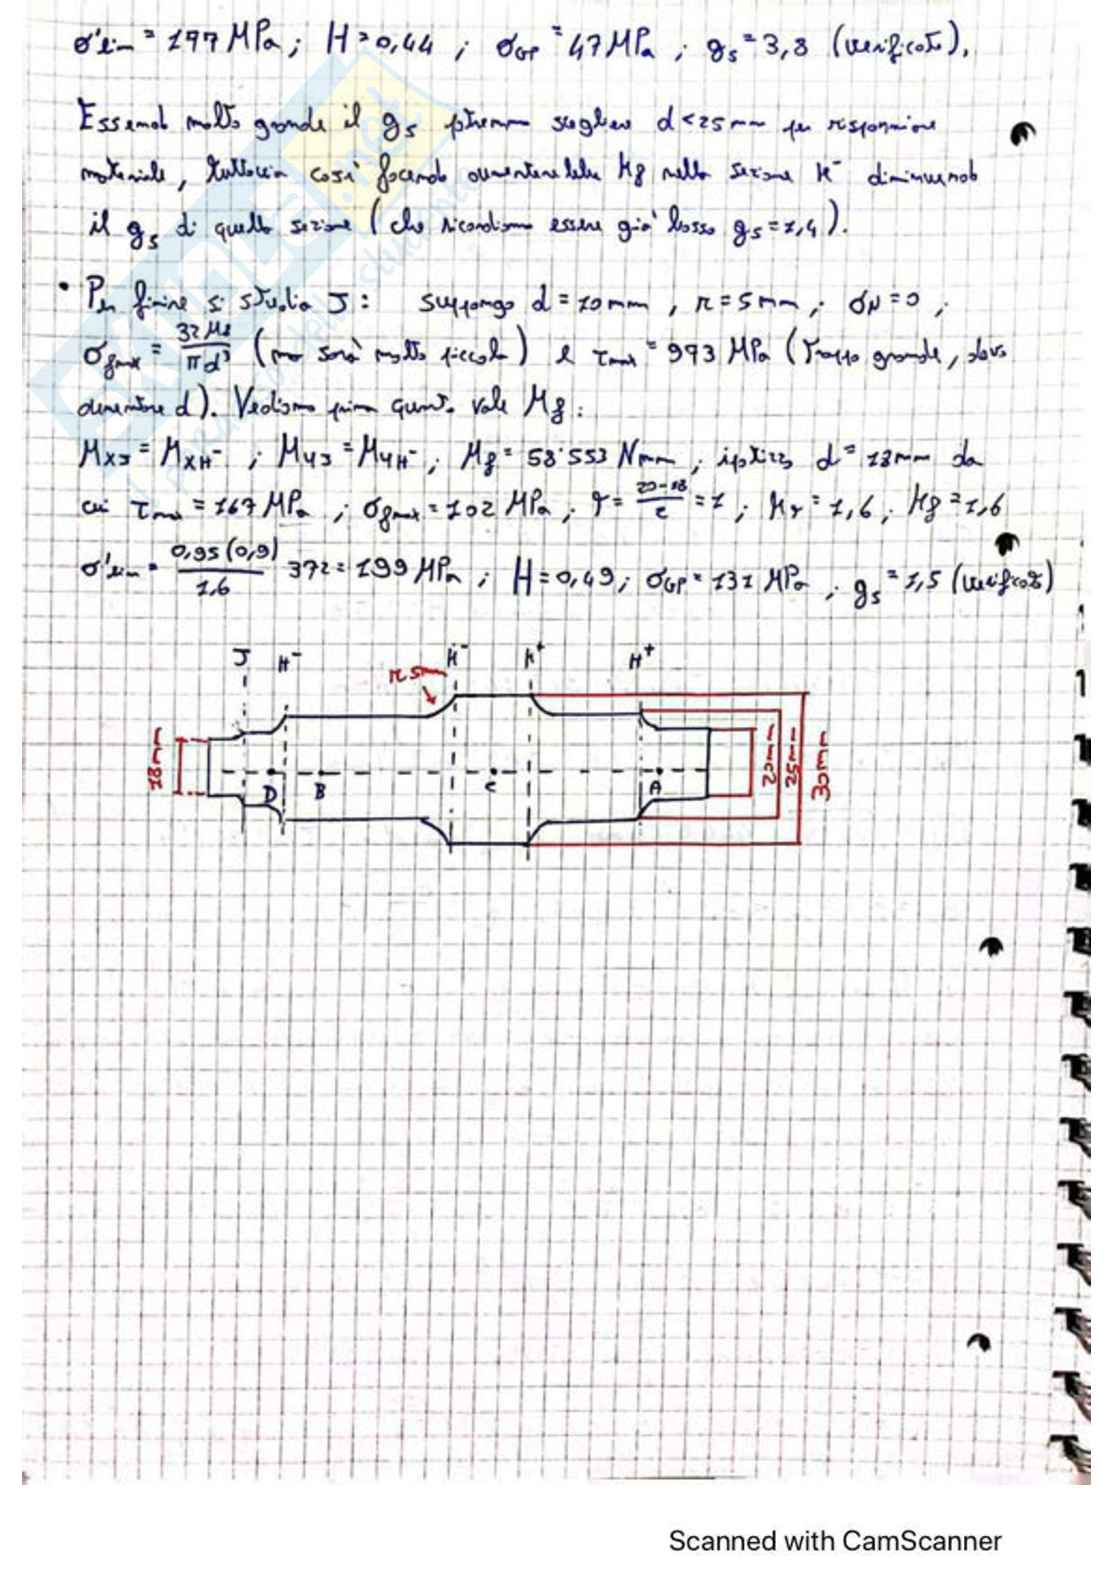 σ'lim = 197 MPa ; H = 0,44 ; σGP = 47 MPa ; gs = 3,8 (verificato).
Essendo molto grande il gs potremmo scegliere d < 25 mm per risparmiare
materiale, tuttavia così facendo aumenterebbe Kf nella sezione K⁻ diminuendo
il gs di quella sezione (che ricordiamo essere già basso gs = 1,4).
• Per finire si studia J : suppongo d = 10 mm , r = 5 mm ; σN = 0 ;
σfmax = 32 Mf / πd³ (ma sarà molto piccola) e τmax = 993 MPa (troppo grande, devo
aumentare d). Vediamo prima quanto vale Mf :
MxJ = MxH⁻ ; MyJ = MyH⁻ ; Mf = 58'553 Nmm ; ipotizzo d = 18 mm da
cui τmax = 167 MPa ; σfmax = 102 MPa ; r = 20-18 / 2 = 1 ; Kr = 1,6 ; Kf = 1,6
σ'lim = 0,95 (0,9) / 1,6 372 = 199 MPa ; H = 0,49 ; σGP = 131 MPa ; gs = 1,5 (verificato)
J H⁻ K⁻ K⁺ H⁺
r 5mm
18mm D B C A 20mm 25mm 30mm
Scanned with CamScanner